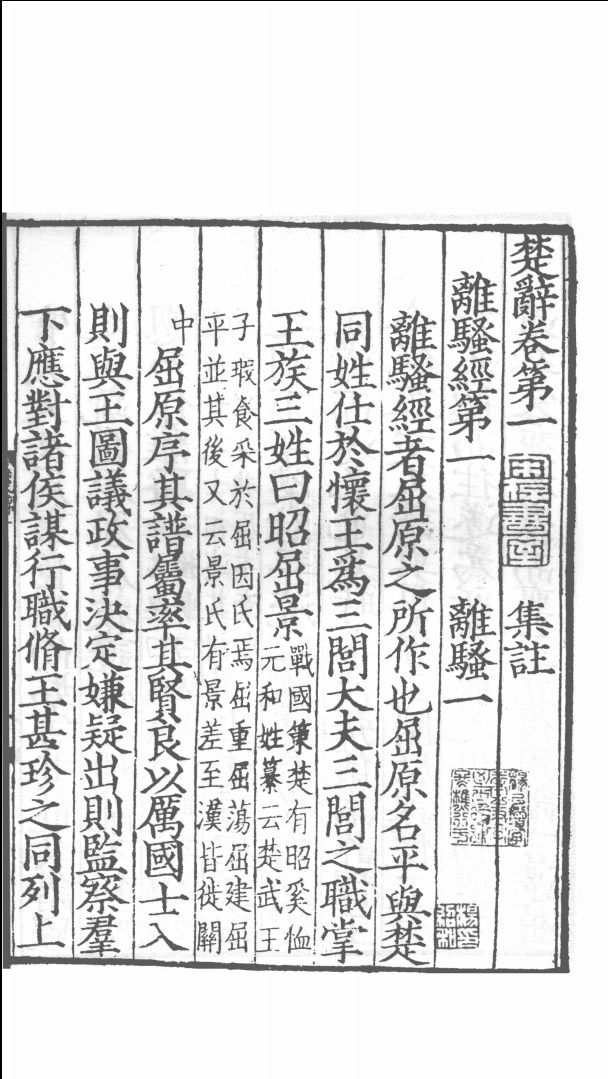 楚辭卷第一 宋存書室 集註
離騷經第一 離騷一
離騷經者屈原之所作也屈原名平與楚
同姓仕於懷王爲三閭大夫三閭之職掌
王族三姓曰昭屈景
戰國策楚有昭奚恤
元和姓纂云楚武王
子瑕食采於屈因氏焉屈重屈蕩屈建屈
平並其後又云景氏有景差至漢皆徙關
中
屈原序其譜屬率其賢良以厲國士入
則與王圖議政事決定嫌疑出則監察羣
下應對諸侯謀行職脩王甚珍之同列上